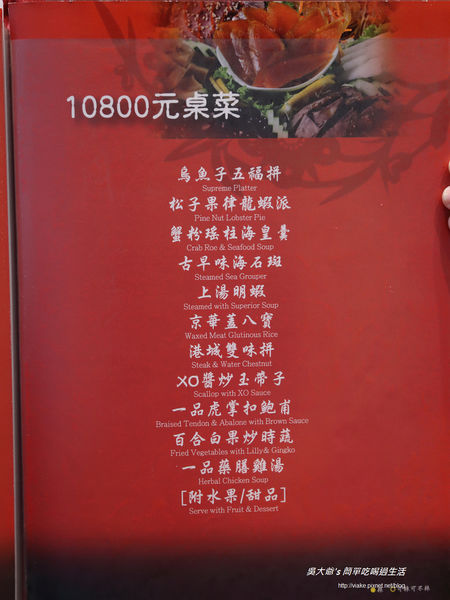 10800元桌菜
烏魚子五福拼
Supreme Platter
松子果律龍蝦派
Pine Nut Lobster Pie
蟹粉瑤柱海皇羹
Crab Roe & Seafood Soup
古早味海石斑
Steamed Sea Grouper
上湯明蝦
Steamed with Superior Soup
京華蓋八寶
Waxed Meat Glutinous Rice
港城雙味拼
Steak & Water Chestnut
XO醬炒玉帶子
Scallop with XO Sauce
一品虎掌扣鮑甫
Braised Tendon & Abalone with Brown Sauce
百合白果炒時蔬
Fried Vegetables with Lilly & Gingko
一品藥膳雞湯
Herbal Chicken Soup
[附水果/甜品]
Serve with Fruit & Dessert
吳大爺's 簡單吃喝過生活
http://viake.pixnet.net/blog